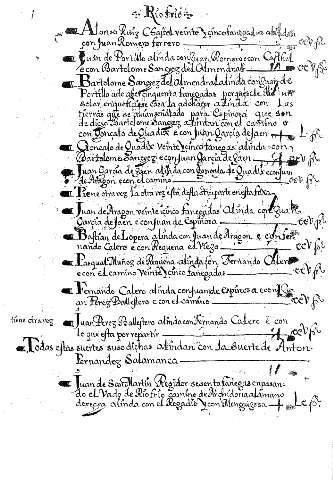 Riofrio
Alonso Ruiz C veinte y cinco fanegadas alindan
con Juan Romero ferrero
Juan de Portillo alinda con Juan Romero e con
e con Bartolome Sangez del Almendral
Bartolome Sangez del Almendral alinda con Juan de
Portillo a de aber cinquenta fanegadas
solar, en que le de la alinda con las
tierras que se para Espinosa que son
de dicho Bartolome Sangez alindan con el camino e
con Gonçalo de Quadix e con Juan Garcia de Jaen
Gonçalo de Quadix veinte y cinco fanegadas alinda con
Bartolome Sangez e con Juan Garcia de Jaen
Juan Garcia de Jaen alinda con Gonçalo de Quadix e con Juan
de Aragon e con el camino
Tiene otra vez la otra vez esta
Juan de Aragon veinte e cinco fanegadas alinda con Juan
Garcia de Jaen e con Juan de Espinosa
Bastian de Lopera alinda con Juan de Aragon e con Fer
nando Calero e con Requena el Viejo
Pasqual Muñoz de Requena alinda con Fernando Calero
e con el camino Veinte y cinco fanegadas
Fernando Calero alinda con Juan de Espinosa e con Ju
an Perez Ballestero e con el camino
tiene otra vez
Juan Perez Ballestero alinda con Fernando Calero e con
lo que esta por repartir
Todas estas suertes suso dichas alindan con la Suerte de Anton
Fernandez Salamanca
Juan de San Martin Regidor sesenta fanegas en pasan-
do el Vado de Riofrio camino de Archidona a la mano
derecha alinda con el Regadio y con